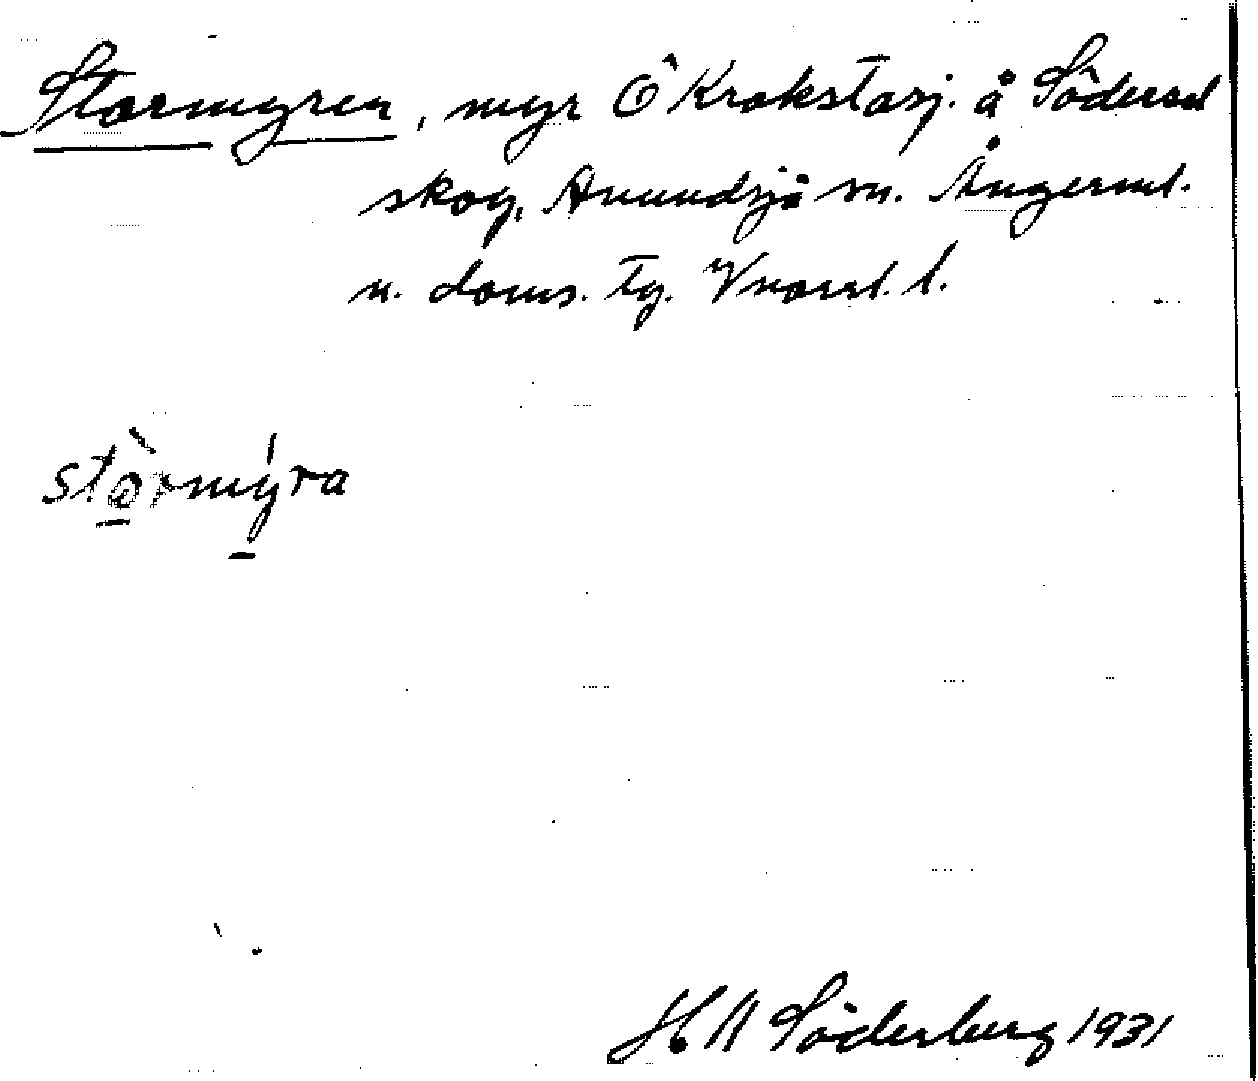 Stormyren, myr Ö Krokstasj. å Södersel
skog, Anundsjö sn. Ångerml.
n. doms. tg. Vnorrl. l.
stòrmýra
H A Söderberg 1931